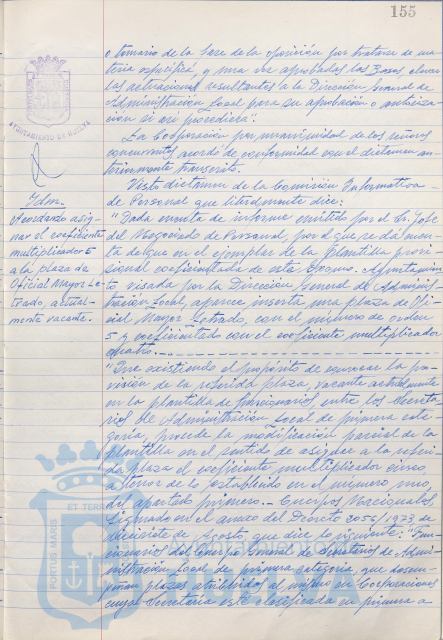 155
o temario de la fase de la oposición por tratarse de ma-
teria específica, y una vez aprobadas las Bases elevar
las actuaciones resultantes a la Dirección General de
Administración Local para su aprobación o autoriza-
ción si así procediera".
AYUNTAMIENTO DE HUELVA
La Corporación por unanimidad de los señores
concurrentes acordó de conformidad con el dictamen an-
teriormente transcrito.
Idm.
Acordando asig-
nar el coeficiente
multiplicador 5
a la plaza de
Oficial Mayor Le-
trado, actual-
mente vacante.
Visto dictamen de la Comisión Informativa
de Personal que literalmente dice:
"Dada cuenta de informe emitido por el Sr. Jefe
del Negociado de Personal, por el que se dá cuen-
ta de que en el ejemplar de la Plantilla provi-
sional coeficientada de este Excmo. Ayuntamien-
to visada por la Dirección General de Adminis-
tración Local, aparece inserta una plaza de Ofi-
cial Mayor Letrado, con el número de orden
5 y coeficientado con el coeficiente multiplicador
cuatro.
"Que existiendo el propósito de convocar la pro-
visión de la referida plaza, vacante actualmente
en la plantilla de funcionarios entre los Secreta-
rios de Administración Local de primera cate-
goría, procede la modificación parcial de la
plantilla en el sentido de asignar a la referi-
da plaza el coeficiente multiplicador cinco,
a tenor de lo establecido en el número uno,
del apartado primero.- Cuerpos Nacionales
signado en el anexo del Decreto 2056/1973 de
diecisiete de Agosto, que dice lo siguiente: "Fun-
cionarios del Cuerpo General de Secretarios de Admi-
nistración Local de primera categoría, que desem-
peñan plazas atribuidas al mismo en Corporaciones
cuya Secretaría esté clasificada en primera a
ET TERRAE
PORTUS MARIS